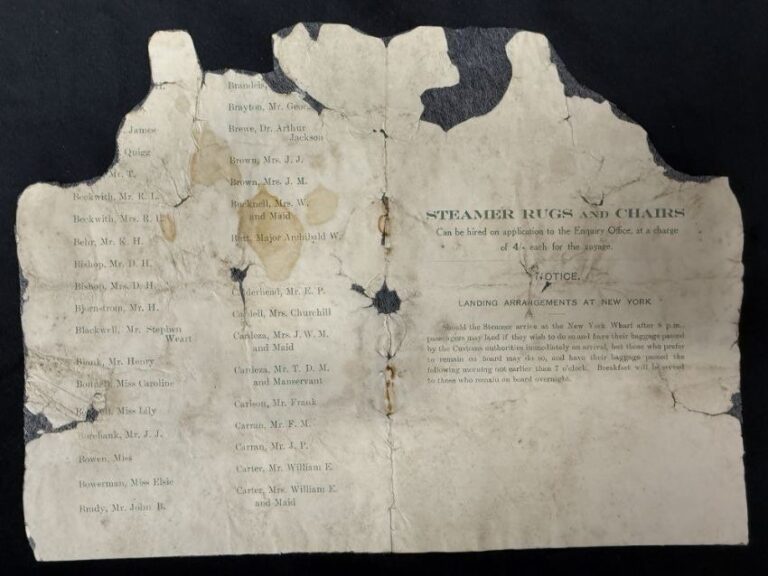 James
Quigg
Mr. T.
Beckwith, Mr. R. L.
Beckwith, Mrs. R. L.
Behr, Mr. K. H.
Bishop, Mr. D. H.
Bishop, Mrs. D. H.
Bjornstrom, Mr. H.
Blackwell, Mr. Stephen
Weart
Blank, Mr. Henry
Miss Caroline
Miss Lily
Mr. J. J.
Bowen, Miss
Bowerman, Miss Elsie
Brady, Mr. John B.
Brandeis,
Brayton, Mr. Geo
Brewe, Dr. Arthur
Jackson
Brown, Mrs. J. J.
Brown, Mrs. J. M.
Bucknell, Mrs. W.
and Maid
Butt, Major Archibald W.
Calderhead, Mr. E. P.
Cardell, Mrs. Churchill
Cardeza, Mrs. J. W. M.
and Maid
Cardeza, Mr. T. D. M.
and Manservant
Carlson, Mr. Frank
Carran, Mr. F. M.
Carran, Mr. J. P.
Carter, Mr. William E.
Carter, Mrs. William E.
and Maid
STEAMER RUGS AND CHAIRS
Can be hired on application to the Enquiry Office, at a charge
of 4/- each for the voyage.
NOTICE.
LANDING ARRANGEMENTS AT NEW YORK
Should the Steamer arrive at the New York Wharf after 8 p.m.,
passengers may land if they wish to do so and have their baggage passed
by the Customs authorities immediately on arrival, but those who prefer
to remain on board may do so, and have their baggage passed the
following morning not earlier than 7 o'clock. Breakfast will be served
to those who remain on board overnight.